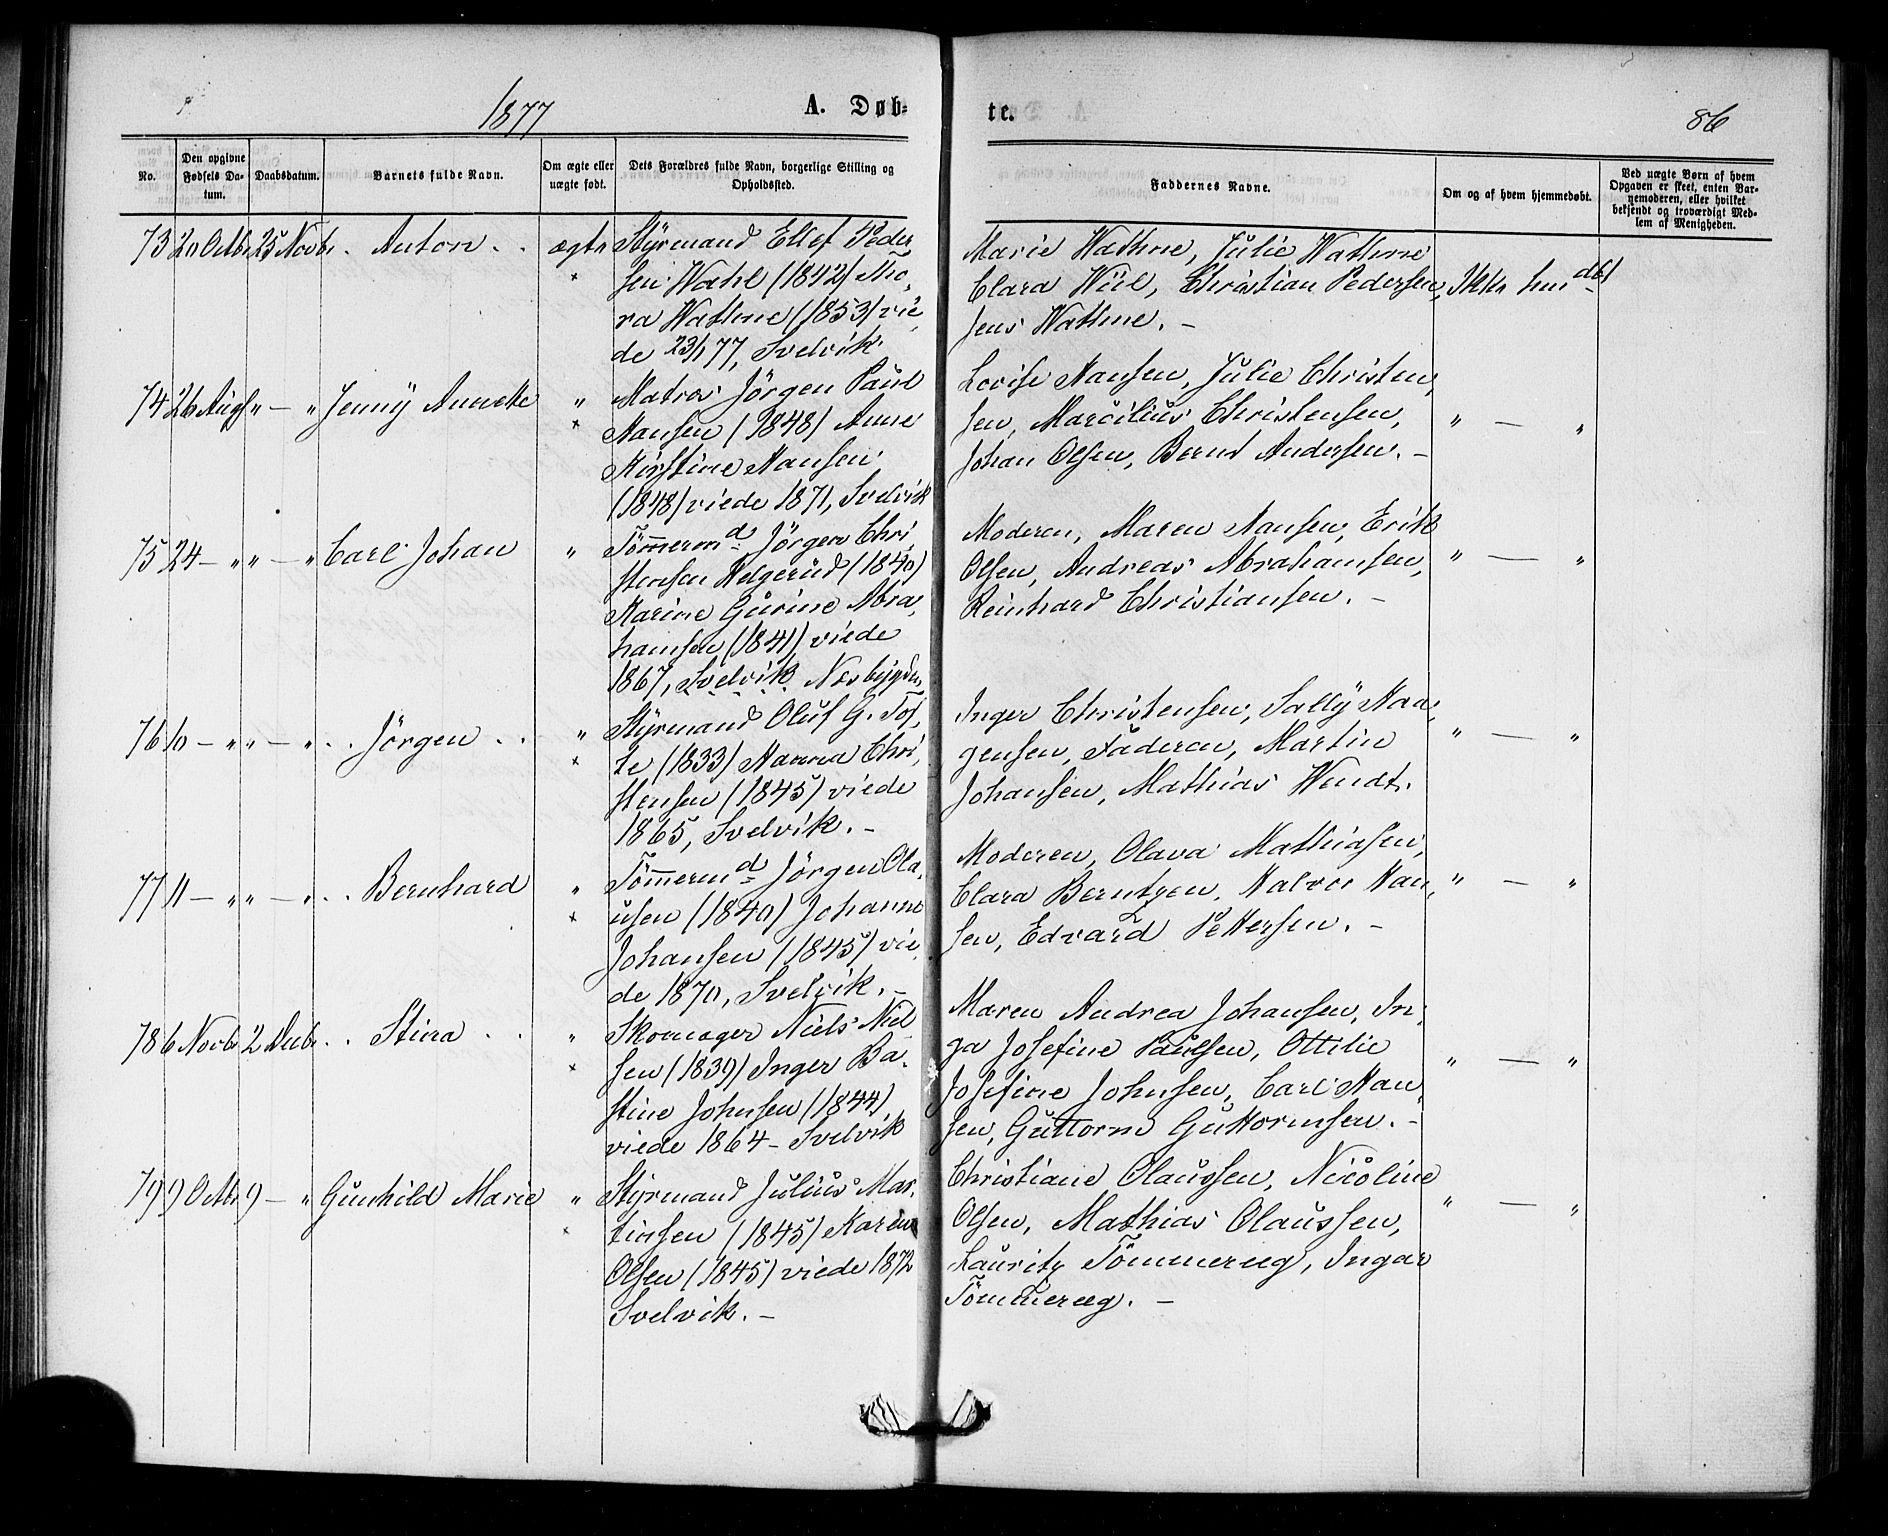 1877
A. Døb=
te.
86
No.
Den opgivne Fødsels Da-tum.
Daabsdatum.
Barnets fulde Navn.
Om ægte eller uægte født.
Dets Forældres fulde Navn, borgerlige Stilling og Opholdssted.
Faddernes Navne.
Om og af hvem hjemmedøbt.
Ved uægte Børn af hvem Opgaven er skeet, enten Bar-nemoderen, eller hvilket bekjendt og troværdigt Med-lem af Menigheden.
73 20 Octbr 25 Novbr . Anton . . ægte Styrmand Ellef Peder
sen Wahl (1842) Tho,
ra Wathne (1853) vie,
de 23/1 77, Svelvik
Marie Wathne, Julie Wathne
Clara Wiil, Christian Pedersen,
Jens Wathne. –
Ikke hmdbt
74 26 Augs " — " Jenny Annette " Matros Jörgen Paul
Hansen (1848) Anne
Kirstine Hansen
(1848) viede 1871, Svelvik
Lovise Hansen, Julie Christen,
sen, Marcilius Christensen,
Johan Olsen, Bernt Andersen. –
" — "
75 24 – " " – " Carl Johan " Tömmermd Jörgen Chri,
stensen Helgerud (1840)
Karine Gurine Abra,
hamsen (1841) viede
1867, Svelvik Nesbygden
Moderen, Maren Hansen, Erik
Olsen, Andreas Abrahamsen,
Reinhard Christiansen. –
" — "
76 10 – " " – " . . Jörgen . . " Styrmand Oluf G. Tof,
te (1833) Hanna Chri,
stensen (1845) viede
1865, Svelvik. –
Inger Christensen, Sally Haa,
gensen, Faderen, Martin
Johansen, Mathias Wendt.
" — "
77 11 – " " – " . . Bernhard " Tömmermd Jörgen Ola,
usen (1840) Johanne
Johansen (1845) vie,
de 1870, Svelvik. –
Moderen, Olava Mathiasen,
Clara Berntzen, Halvor Han,
sen, Edvard Pettersen. –
" — "
78 6 Novbr 2 Decbr . . Stina . . " Skomager Niels Niel
sen (1839) Inger Ba,
stine Johnsen (1844)
viede 1864 – Svelvik
Maren Andrea Johansen, In,
ga Josefine Paulsen, Ottilie
Josefine Johnsen, Carl Han,
sen, Guttorm Guttormsen. –
" — "
79 9 Octbr 9 – " Gunhild Marie " Styrmand Julius Mar,
tinsen (1845) Karen
Olsen (1845) viede 1872
Svelvik. –
Christiane Olaussen, Nicoline
Olsen, Mathias Olaussen,
Lauritz Tömmeraag, Ingar
Tömmeraag. –
" — "